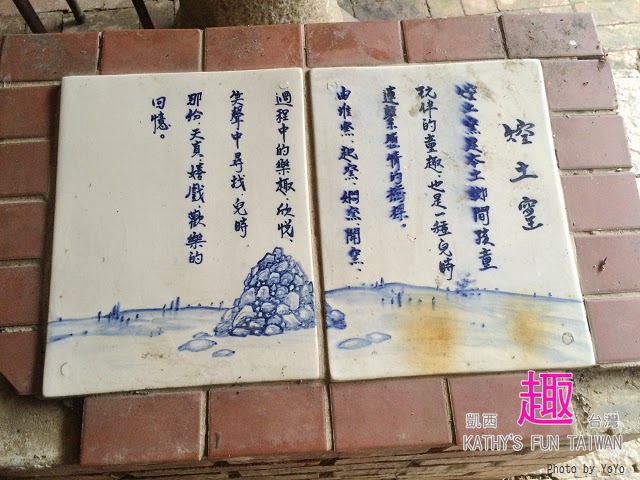 焢土窯
焢土窯是本土鄉間孩童
玩伴的童趣、也是一種兒時
連繫感情的橋樑。
由堆窯、起窯、燜窯開窯、
過程中的樂趣、欣悅、
笑聲中尋找兒時
那份天真嬉戲歡樂的
回憶。
凱西 趣 台灣
KATHY'S FUN TAIWAN
Photo by YoYo